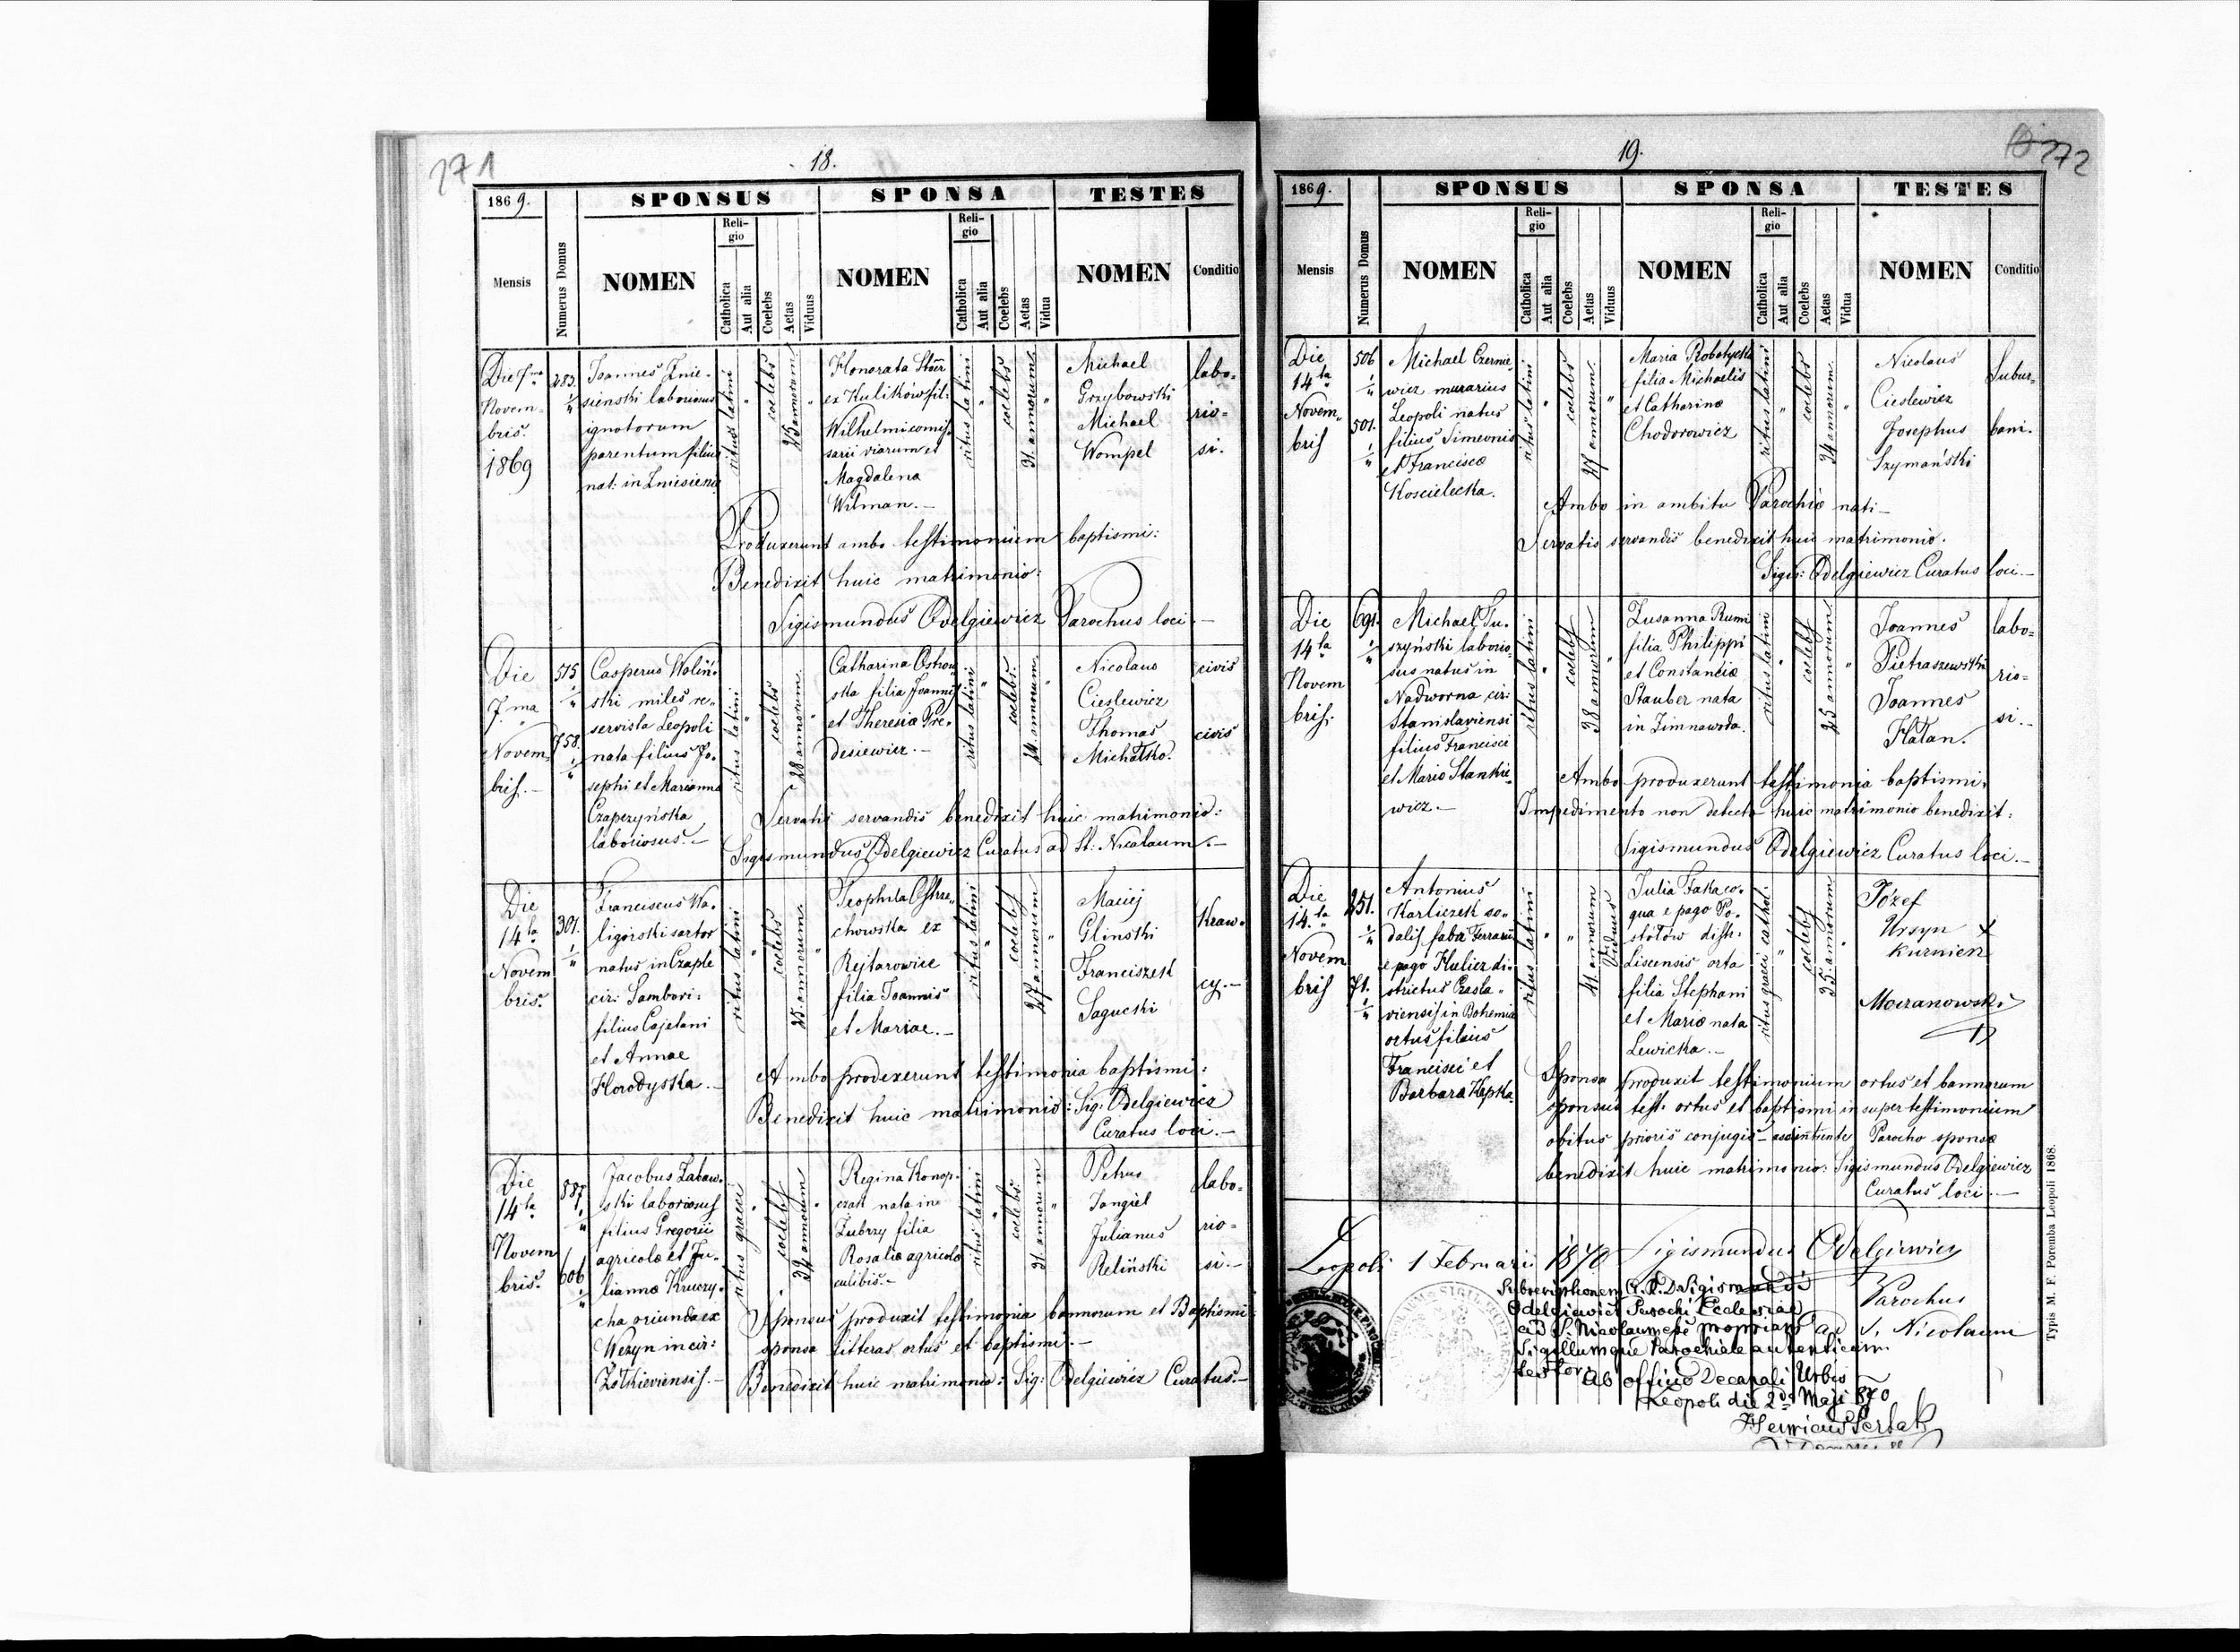 271
18.
1869.
SPONSUS
SPONSA
TESTES
Mensis
Numerus Domus
NOMEN
Reli-
gio
Catholica
Aut alia
Coelebs
Aetas
Viduus
NOMEN
Reli-
gio
Catholica
Aut alia
Coelebs
Aetas
Vidua
NOMEN
Conditio
Die 7ma
Novem
bris.
1869
283.
Joannes Znie-
sienski laboriosus
ignotorum
parentum filius
nat: in Zniesienie
ritus latini
"
coelebs
25 annorum
"
Honorata
ex Kulików fil:
Wilhelmi comis-
sarii viarum et
Magdalena
Wilman.-
ritus latini
"
coelebs
31. annorum
"
Michael
Grzybowski
Michael
Wompel
labo-
rio-
si.
Produxerunt ambo testimonium baptismi:
Benedixit huic matrimonio:
Sigismundus Odelgiewicz Parochus loci.-
Die
7.ma
Novem
bris.-
515
758.
Casperus Woliń-
ski miles re-
servista Leopoli
nata filius Jo-
sephi et Marianna
Czaperzyńska
laboriosus.-
ritus latini
"
coelebs
28 annorum
"
Catharina Ostrow
ska filia Joannis
et Theresiæ Pre-
desiewicz.-
ritus latini
"
coelebs.
24. annorum
"
Nicolaus
Cieslewicz
Thomas
Michałko.
civis
civis
Servatis servandis benedixit huic matrimonio:
Sigismundus Odelgiewicz Curatus ad St: Nicolaum.-
Die
14ta
Novem
bris.
301.
Franciscus Wa-
ligorski sartor
natus in Czaple
cir: Sambori:
filius Cajetani
et Annae
Horodyska.-
ritus latini
"
coelebs
25. annorum
"
Teophila Ostrze-
chowska ex
Rejtarowice
filia Joannis
et Mariae.-
ritus latini
"
coelebs
27 annorum
"
Maciej
Glinski
Franciszek
Sagucki
Kraw-
cy.-
Ambo produxerunt testimonia baptismi:
Benedixit huic matrimonio: Sig: Odelgiewicz
Curatus loci.-
Die
14ta
Novem
bris.
887.
606
Jacobus Zabaw-
ski laboriosus
filius Gregorii
agricolæ et Ju-
lianna Kruczy-
cha oriunda ex
Wezyn in cir:
Żółkieviensis.-
ritus graeci
"
coelebs
32 annorum
"
Regina Konop-
czak nata in
Zubrzy filia
Rosaliæ agricolæ
ritus latini
"
coelebs
31 annorum
"
Petrus
Jangiel
Julianus
Reliński
labo-
rio-
si.-
Sponsus produxit testimonia bannorum et Baptismi
sponsa litteras ortus et baptismi.-
Benedixit huic matrimonio: Sig: Odelgiewicz Curatus.-
272
19.
1869.
SPONSUS
SPONSA
TESTES
Mensis
Numerus Domus
NOMEN
Reli-
gio
Catholica
Aut alia
Coelebs
Aetas
Viduus
NOMEN
Reli-
gio
Catholica
Aut alia
Coelebs
Aetas
Vidua
NOMEN
Conditio
Die
14ta
Novem
bris
506
501.
Michael Czernie
wicz murarius
Leopoli natus
filius Simeonis
et Francisca
Koscielecka.
ritus latini
"
coelebs
27 annorum.
"
Maria Robotycka
filia Michaelis
et Catharinæ
Chodorowicz
ritus latini
"
coelebs
24 annorum
"
Nicolaus
Cieslewicz
Josephus
Szymański
Subur-
bani.
Ambo in ambitu Parochiæ nati-
Servatis servandis benedixit huic matrimonio.
Sigis: Odelgiewicz Curatus loci.-
Die
14ta
Novem
bris.
691.
Michael Tu-
szyński laborio-
sus natus in
Nadworna cir:
Stanislaviensi
filius Francisci
et Maria Stankie-
wicz.-
ritus latini
"
coelebs
38 annorum
"
Zusanna Rumi
filia Philippi
et Constanciæ
Stauber nata
in Zimnawoda.
ritus latini
"
coelebs
25 annorum
"
Joannes
Pietraszewski
Joannes
Hatan.
labo-
rio-
si.-
Ambo produxerunt testimonia baptismi.
Impedimento non detecto huic matrimonio benedixit:
Sigismundus Odelgiewicz Curatus loci.-
Die
14.ta
Novem
bris
251.
71.
Antonius
Karliczek so-
dalis fabri Ferrarii
e pago Kulicz di-
strictus Czasla-
viensis in Bohemia
ortus filius
Francisci et
Barbara Hepka.
ritus latini
"
"
41. annorum
Viduus
Julia Faka co-
qua e pago Po-
stołów distr:
Liscensis orta
filia Stephani
et Mariæ nata
Lewicka.-
ritus graeci cathol.
"
coelebs
35. annorum
"
Józef
Ursyn
Kurnien
Moczanowski
Sponsa produxit testimonium ortus et bannorum
sponsus test: ortus et baptismi in super testimonium
obitus prioris conjugis- Parocho sponsæ
benedixit huic matrimonio: Sigismundus Odelgiewicz
Curatus loci.-
Leopoli 1 Februarii 1870 Sigismundus Odelgiewicz
Parochus
ad S. Nicolaum
Subscriptionem A. R. D. Sigismundi
Odelgiewicz Parochi Ecclesiae
ad S. Nicolaum esse propriam
Sigillumque Parochiale autenticum
testor
Ab officio Decanali Urbis
Leopoli die 2da Maji 870
Typis M. F. Poremba Leopoli 1868.